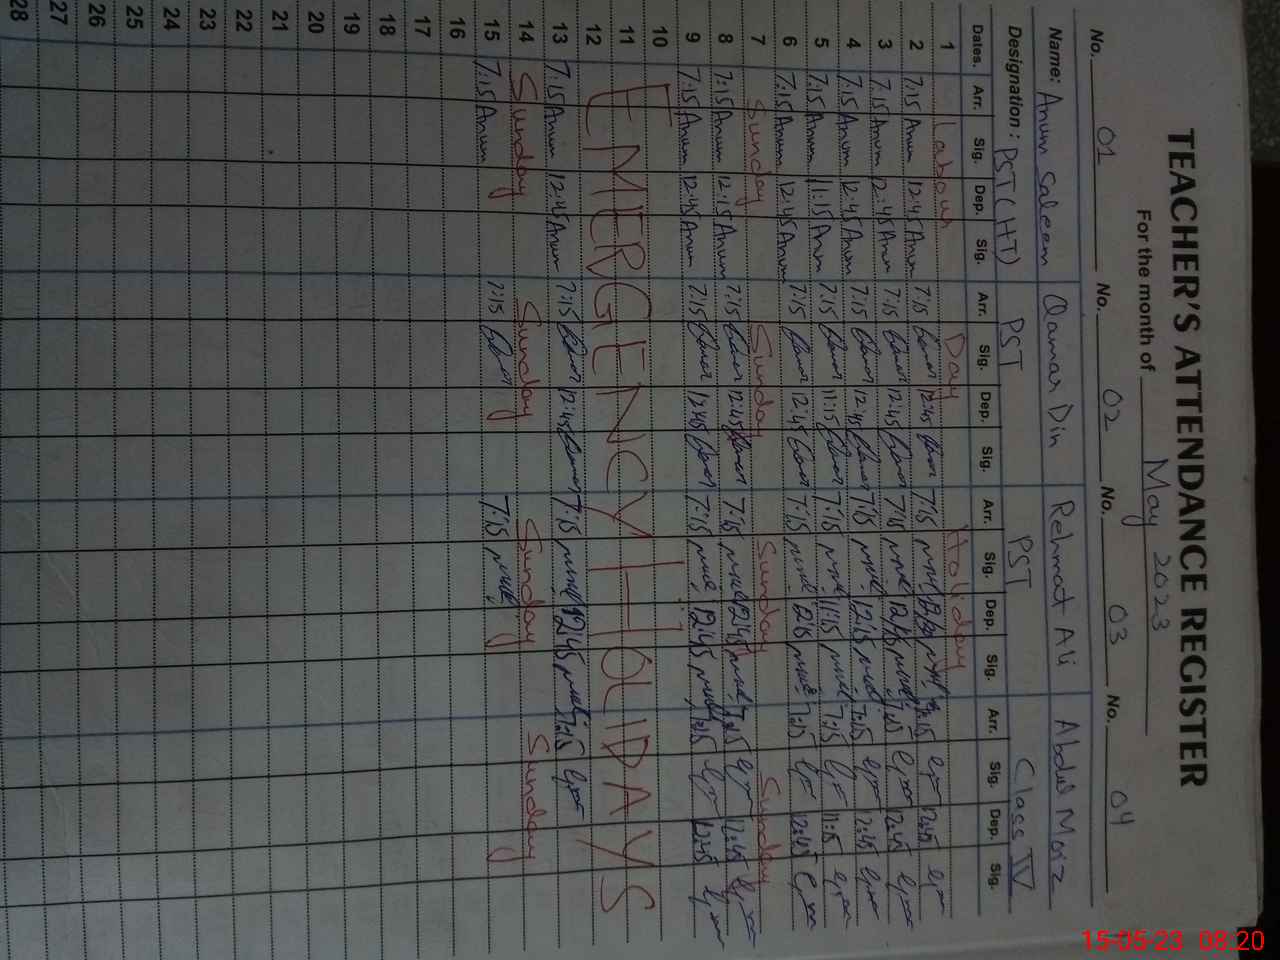 TEACHER'S ATTENDANCE REGISTER
For the month of May 2023
No. 01 No. 02 No. 03 No. 04
Name: Anum Saleem Qamar Din Rehmat Ali Abdul Moiz
Designation: PST (HT) PST PST Class IV
Dates. Arr. Sig. Dep. Sig. Arr. Sig. Dep. Sig. Arr. Sig. Dep. Sig. Arr. Sig. Dep. Sig.
1 Labour Day Holiday
2 7:15 Anum 12:45 Anum 7:15 12:45 7:15 7:15 12:45
3 7:15 Anum 12:45 Anum 7:15 12:45 7:15 7:15 12:45
4 7:15 Anum 12:45 Anum 7:15 12:45 7:15 7:15 12:45
5 7:15 Anum 11:15 Anum 7:15 11:15 7:15 11:15 7:15 11:15
6 7:15 Anum 12:45 Anum 7:15 12:45 7:15 7:15 12:45
7 Sunday Sunday Sunday Sunday
8 7:15 Anum 12:15 Anum 7:15 12:45 7:15 12:45 7:15 12:45
9 7:15 Anum 12:45 Anum 7:15 12:45 7:15 12:45 7:15 12:45
10
11 EMERGENCY HOLIDAYS
12
13 7:15 Anum 12:45 Anum 7:15 12:45 7:15 12:45 7:15
14 Sunday Sunday Sunday Sunday
15 7:15 Anum 7:15 7:15
16
17
18
19
20
21
22
23
24
25
26
27
28
15-05-23 08:20